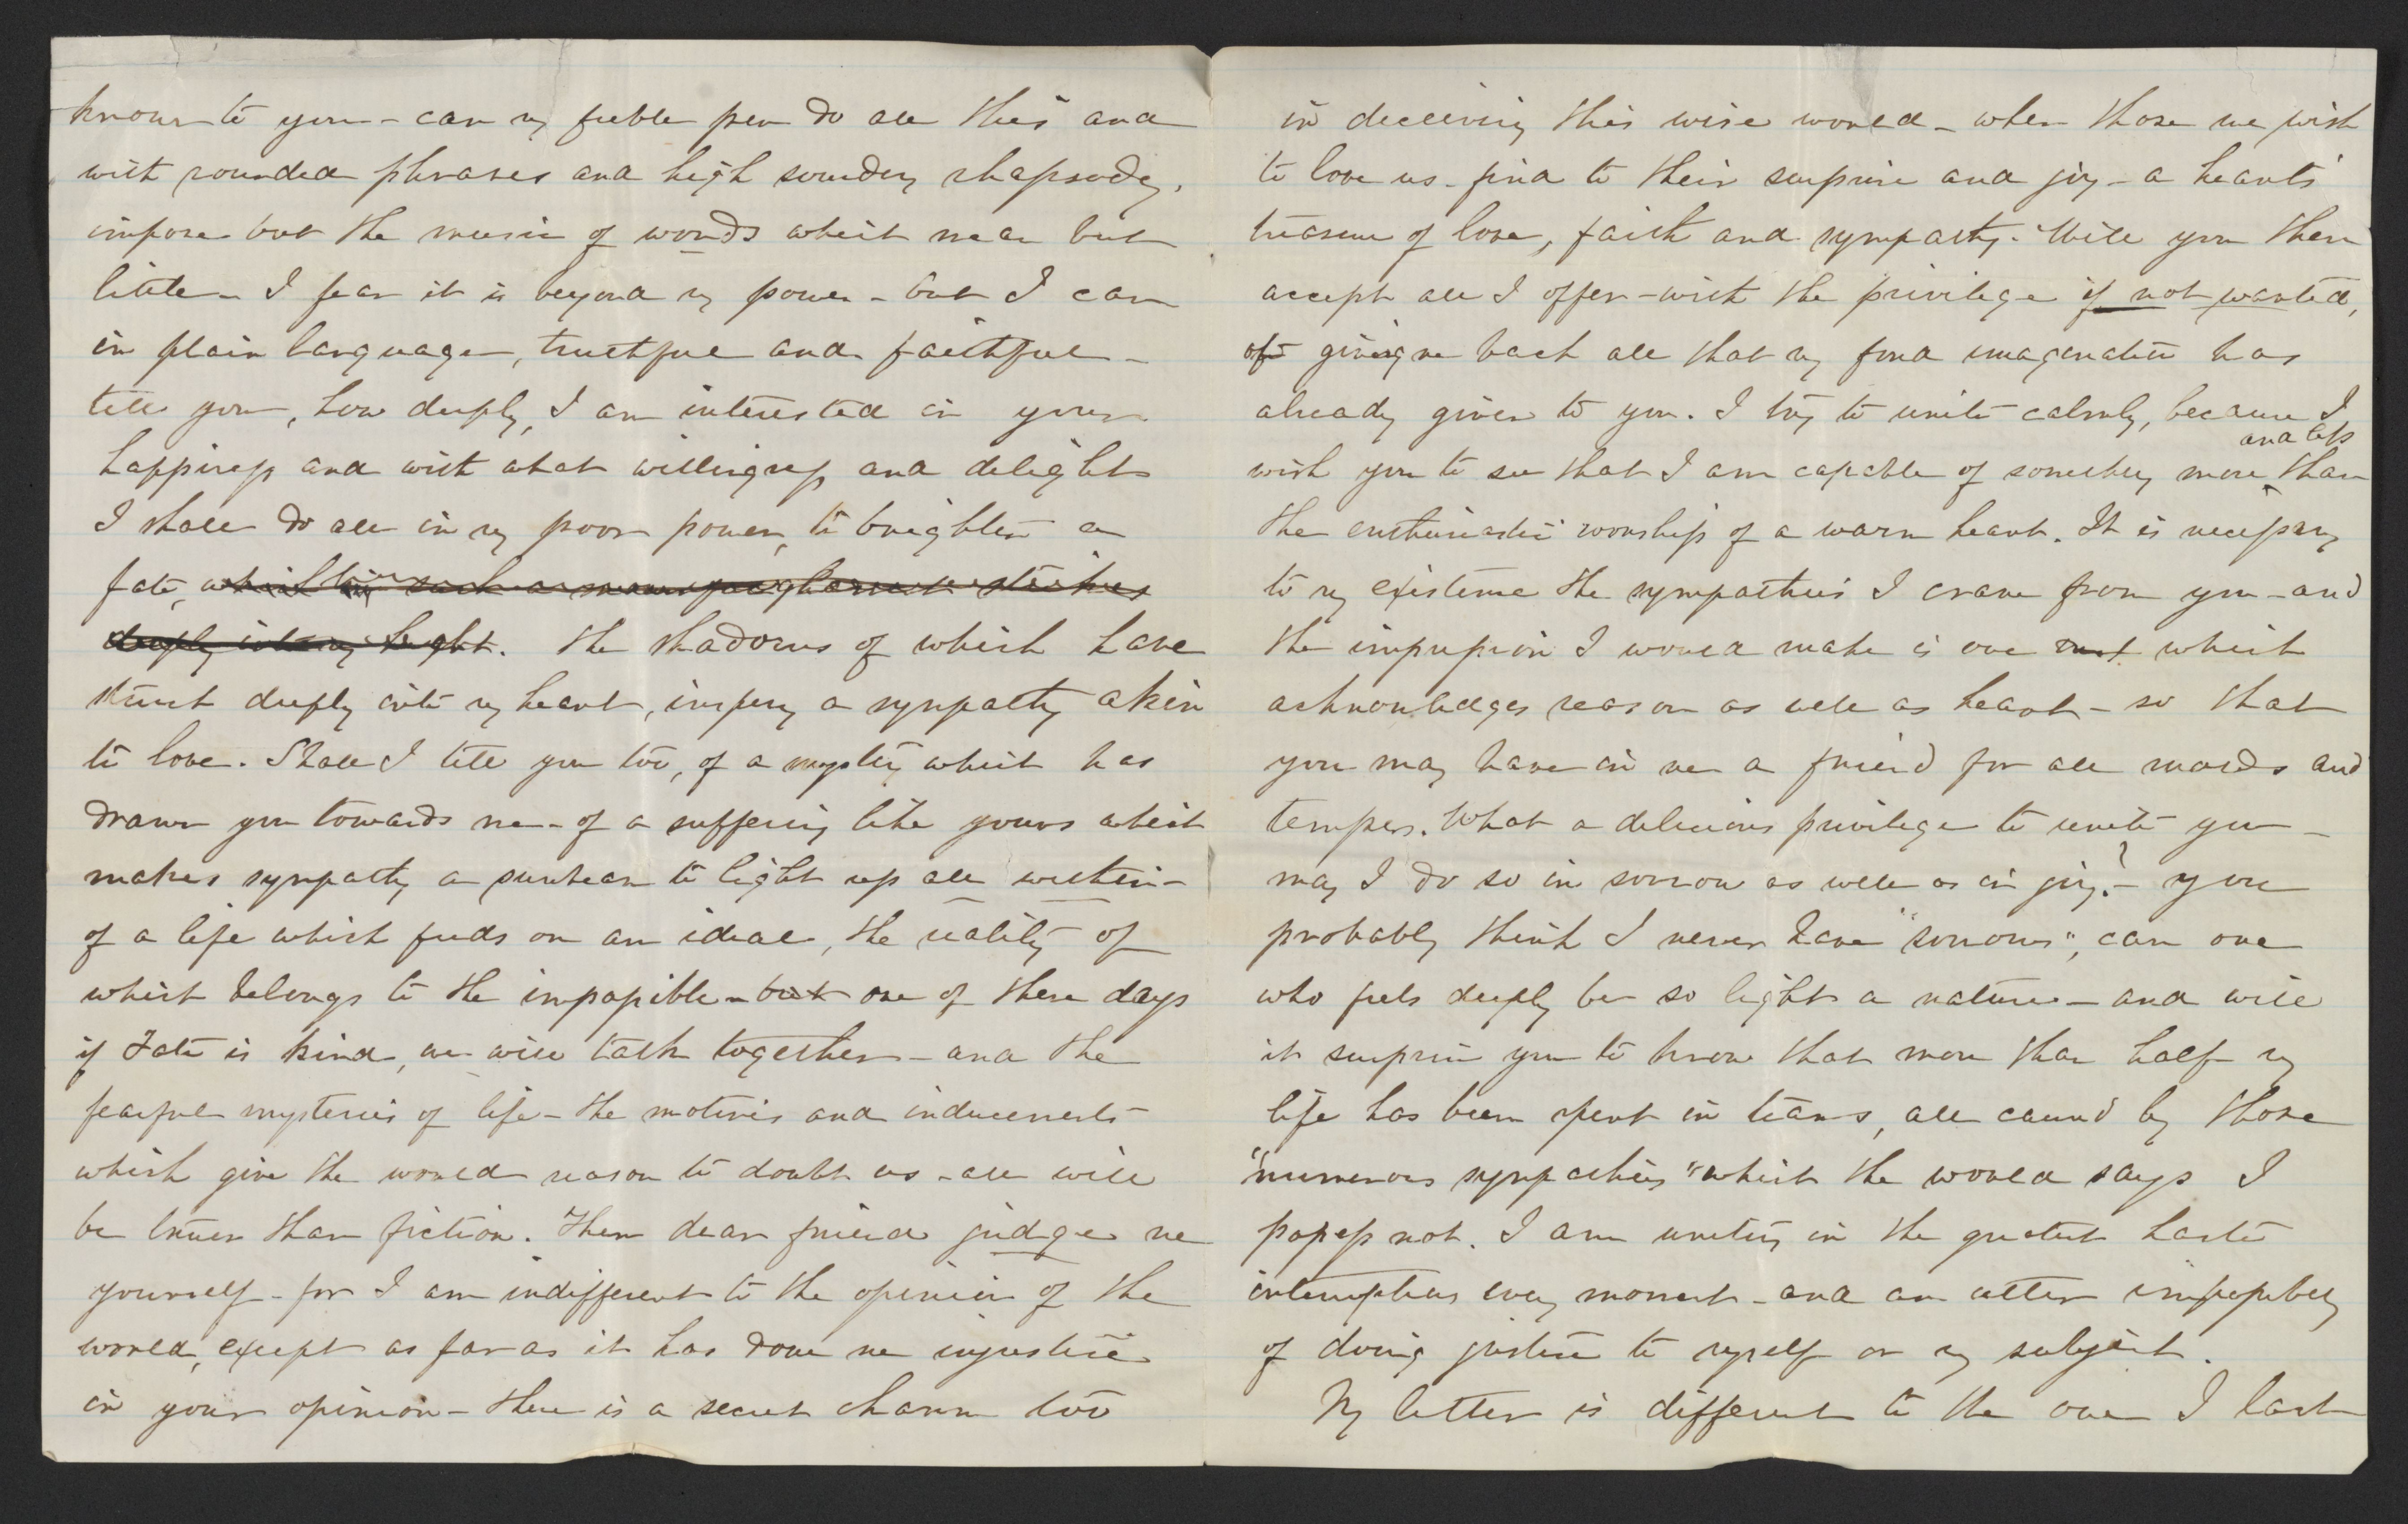 known to you - can my feeble pen do all this and
with rounded phrases and high sounding rhapsody,
impose but the music of words which mean but
little - I fear it is beyond my power - but I can
in plain language, truthful and faithful -
tell you, how deeply, I am interested in your
happiness and with what willingness and delight
I shall do all in my poor power, to brighten a
fate, which such as
deeply into my heart. the shadows of which have
struck deeply into my heart, inspiring a sympathy akin
to love. Shall I tell you too, of a mystery which has
drawn you towards me - of a suffering like yours which
makes sympathy a sunbeam to light up all within -
of a life which feeds on an ideal, the reality of
which belongs to the impossible - but one of these days
if Fate is kind, we will talk together - and the
fearful mysteries of life - the motives and inducements
which give the world reason to doubt us - all will
be truer than fiction. Then dear friend judge me
yourself - for I am indifferent to the opinion of the
world, except as far as it has done me injustice
in your opinion - there is a secret charm too
in deceiving this wise world - when those we wish
to love us - find to their surprise and joy - a heart's
treasure of love, faith and sympathy. Will you then
accept all I offer - with the privilege if not wanted,
of giving me back all that my fond imagination has
already given to you. I try to write calmly, because I
and less
wish you to see that I am capable of something more than
the enthusiastic worship of a warm heart. It is necessary
to my existence the sympathies I crave from you - and
the impression I would make is one which
acknowledges reason as well as heart - so that
you may have in me a friend for all moods and
tempers. What a delicious privilege to write you -
may I do so in sorrow as well as in joy? - you
probably think I never have "sorrows", can one
who feels deeply be so light a nature - and will
it surprise you to know that more than half my
life has been spent in tears, all caused by those
"numerous sympathies" which the world says I
possess not. I am writing in the greatest haste
interruptions every moment - and an utter impossibility
of doing justice to myself or my subject.
My letter is different to the one I last